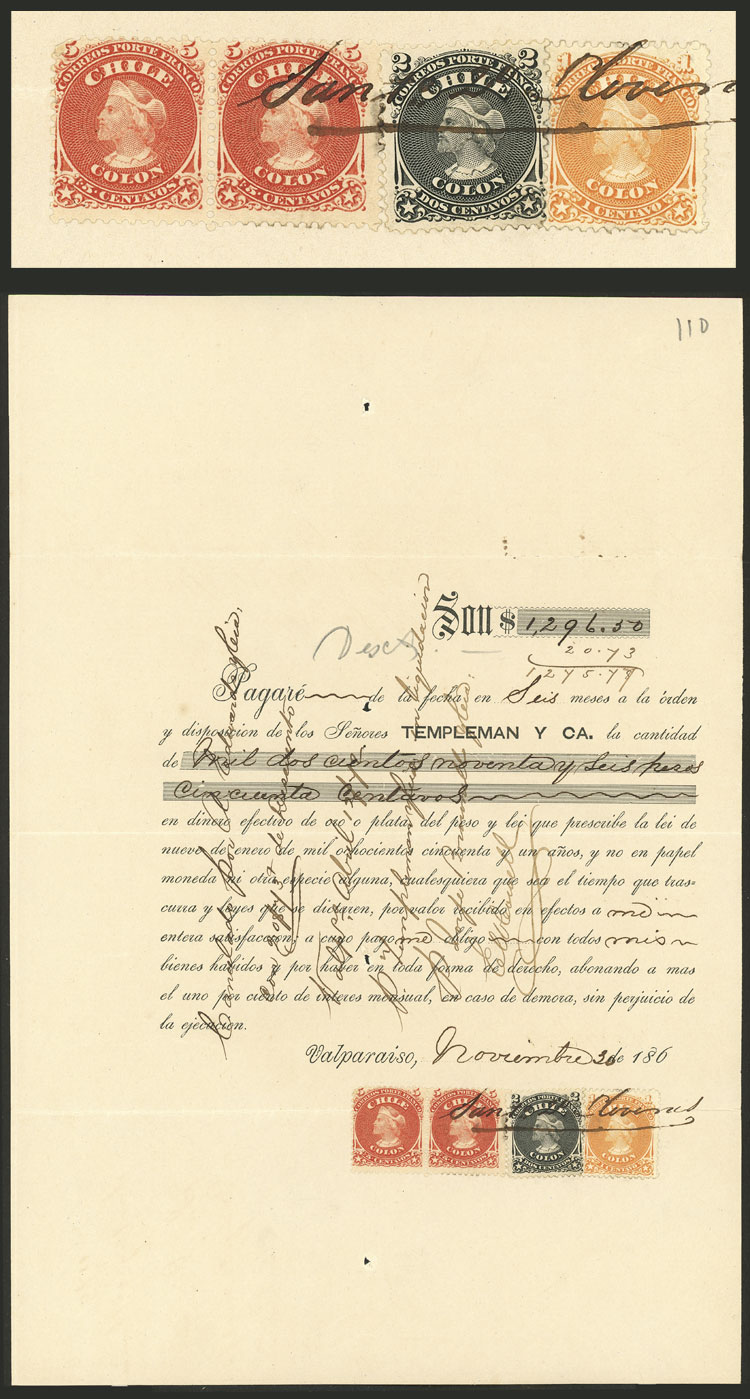 5 5 5 5 2 2 1 1
CORREOS PORTE FRANCO CORREOS PORTE FRANCO CORREOS PORTE FRANCO CORREOS PORTE FRANCO
CHILE CHILE CHILE CHILE
COLON COLON COLON COLON
5 CENTAVOS 5 CENTAVOS DOS CENTAVOS 1 CENTAVO
110
Son $ 1,296.50
20.73
Desct
Pagaré de la fecha en Seis meses a la órden
y disposicion de los Señores TEMPLEMAN Y CA. la cantidad
de Mil dos cientos noventa y seis pesos
cincuenta centavos
en dinero efectivo de oro o plata, del peso y lei que prescribe la lei de
nueve de enero de mil ochocientos cincuenta y un años, y no en papel
moneda ni otra especie alguna, cualesquiera que sea el tiempo que tras-
curra y leyes que se dictaren, por valor recibido en efectos a mi
entera satisfaccion, a cuyo pago me obligo con todos mis
bienes habidos y por haber en toda forma de derecho, abonando a mas
el uno por ciento de interes mensual, en caso de demora, sin perjuicio de
la ejecucion.
Valparaiso, Noviembre 30 de 186
Cancelado por
con de descuento
Abril
Templeman
liquidacion
5 5 5 5 2 2 1 1
CORREOS PORTE FRANCO CORREOS PORTE FRANCO CORREOS PORTE FRANCO CORREOS PORTE FRANCO
CHILE CHILE CHILE CHILE
COLON COLON COLON COLON
5 CENTAVOS 5 CENTAVOS DOS CENTAVOS 1 CENTAVO